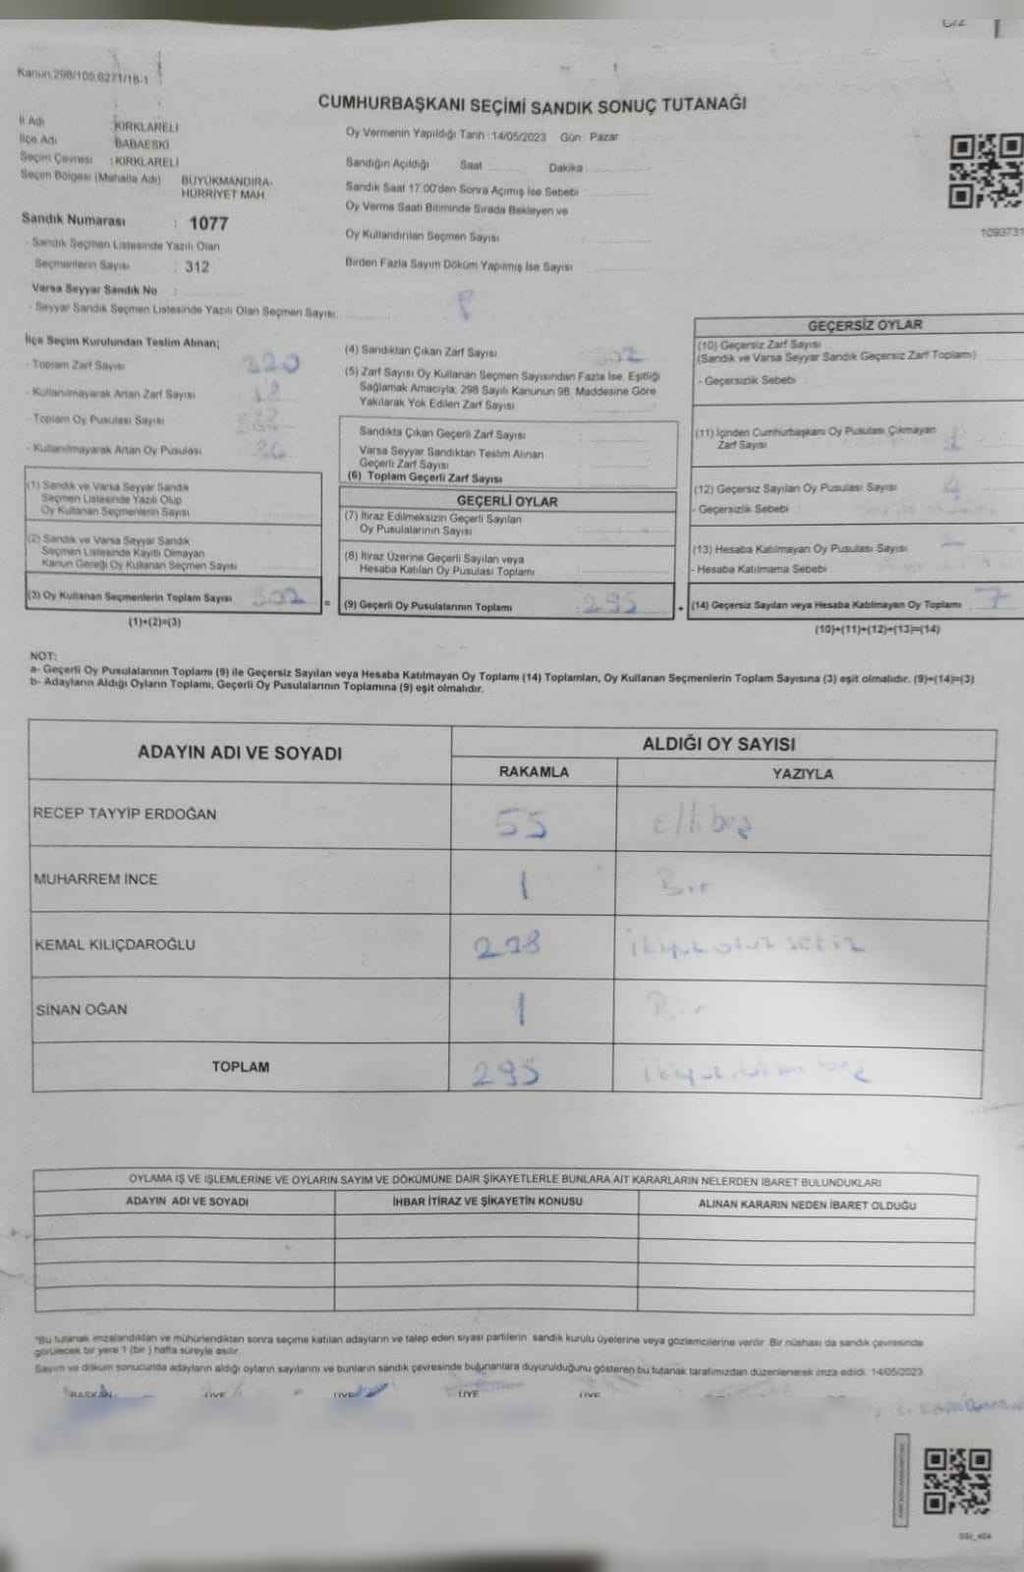 Kanun:298/105,6271/18-1
CUMHURBAŞKANI SEÇİMİ SANDIK SONUÇ TUTANAĞI
İl Adı : KIRKLARELİ
İlçe Adı BABAESKİ
Seçim Çevresi : KIRKLARELİ
Seçim Bölgesi (Mahalle Adı) BÜYÜKMANDIRA-
HÜRRİYET MAH.
Sandık Numarası : 1077
- Sandık Seçmen Listesinde Yazılı Olan
Seçmenlerin Sayısı : 312
Varsa Seyyar Sandık No :
- Seyyar Sandık Seçmen Listesinde Yazılı Olan Seçmen Sayısı:
Oy Vermenin Yapıldığı Tarih : 14/05/2023 Gün : Pazar
Sandığın Açıldığı Saat Dakika
Sandık Saat 17.00'den Sonra Açımış İse Sebebi
Oy Verme Saati Bitiminde Sırada Bekleyen ve
Oy Kullandırılan Seçmen Sayısı
Birden Fazla Sayım Döküm Yapılmış İse Sayısı
1093731
İlçe Seçim Kurulundan Teslim Alınan;
- Toplam Zarf Sayısı 320
- Kullanılmayarak Artan Zarf Sayısı 18
- Toplam Oy Pusulası Sayısı
- Kullanılmayarak Artan Oy Pusulası
(1) Sandık ve Varsa Seyyar Sandık
Seçmen Listesinde Yazılı Olup
Oy Kullanan Seçmenlerin Sayısı
(2) Sandık ve Varsa Seyyar Sandık
Seçmen Listesinde Kayıtlı Olmayan
Kanun Gereği Oy Kullanan Seçmen Sayısı
(3) Oy Kullanan Seçmenlerin Toplam Sayısı 302 =
(1)+(2)=(3)
(4) Sandıktan Çıkan Zarf Sayısı 302
(5) Zarf Sayısı Oy Kullanan Seçmen Sayısından Fazla İse, Eşitliği
Sağlamak Amacıyla; 298 Sayılı Kanunun 98. Maddesine Göre
Yakılarak Yok Edilen Zarf Sayısı
Sandıkta Çıkan Geçerli Zarf Sayısı
Varsa Seyyar Sandıktan Teslim Alınan
Geçerli Zarf Sayısı
(6) Toplam Geçerli Zarf Sayısı
GEÇERLİ OYLAR
(7) İtiraz Edilmeksizin Geçerli Sayılan
Oy Pusulalarının Sayısı
(8) İtiraz Üzerine Geçerli Sayılan veya
Hesaba Katılan Oy Pusulası Toplamı
(9) Geçerli Oy Pusulalarının Toplamı 295 +
GEÇERSİZ OYLAR
(10) Geçersiz Zarf Sayısı
(Sandık ve Varsa Seyyar Sandık Geçersiz Zarf Toplamı)
- Geçersizlik Sebebi
(11) İçinden Cumhurbaşkanı Oy Pusulası Çıkmayan
Zarf Sayısı
(12) Geçersiz Sayılan Oy Pusulası Sayısı
- Geçersizlik Sebebi
(13) Hesaba Katılmayan Oy Pusulası Sayısı
- Hesaba Katılmama Sebebi
(14) Geçersiz Sayılan veya Hesaba Katılmayan Oy Toplamı 7
(10)+(11)+(12)+(13)=(14)
NOT:
a- Geçerli Oy Pusulalarının Toplamı (9) ile Geçersiz Sayılan veya Hesaba Katılmayan Oy Toplamı (14) Toplamları, Oy Kullanan Seçmenlerin Toplam Sayısına (3) eşit olmalıdır. (9)+(14)=(3)
b- Adayların Aldığı Oyların Toplamı, Geçerli Oy Pusulalarının Toplamına (9) eşit olmalıdır.
ADAYIN ADI VE SOYADI ALDIĞI OY SAYISI
RAKAMLA YAZIYLA
RECEP TAYYİP ERDOĞAN 55 elli beş
MUHARREM İNCE 1 Bir
KEMAL KILIÇDAROĞLU 238 ikiyüz otuz sekiz
SİNAN OĞAN 1 Bir
TOPLAM 295
OYLAMA İŞ VE İŞLEMLERİNE VE OYLARIN SAYIM VE DÖKÜMÜNE DAİR ŞİKAYETLERLE BUNLARA AİT KARARLARIN NELERDEN İBARET BULUNDUKLARI
ADAYIN ADI VE SOYADI İHBAR İTİRAZ VE ŞİKAYETİN KONUSU ALINAN KARARIN NEDEN İBARET OLDUĞU
*Bu tutanak imzalandıktan ve mühürlendikten sonra seçime katılan adayların ve talep eden siyasi partilerin sandık kurulu üyelerine veya gözlemcilerine verilir. Bir nüshası da sandık çevresinde
görülecek bir yere 1 (bir ) hafta süreyle asılır.
Sayım ve döküm sonucunda adayların aldığı oyların sayılarını ve bunların sandık çevresinde bulunanlara duyurulduğunu gösteren bu tutanak tarafımızdan düzenlenerek imza edildi. 14/05/2023
BAŞKAN ÜYE ÜYE ÜYE ÜYE